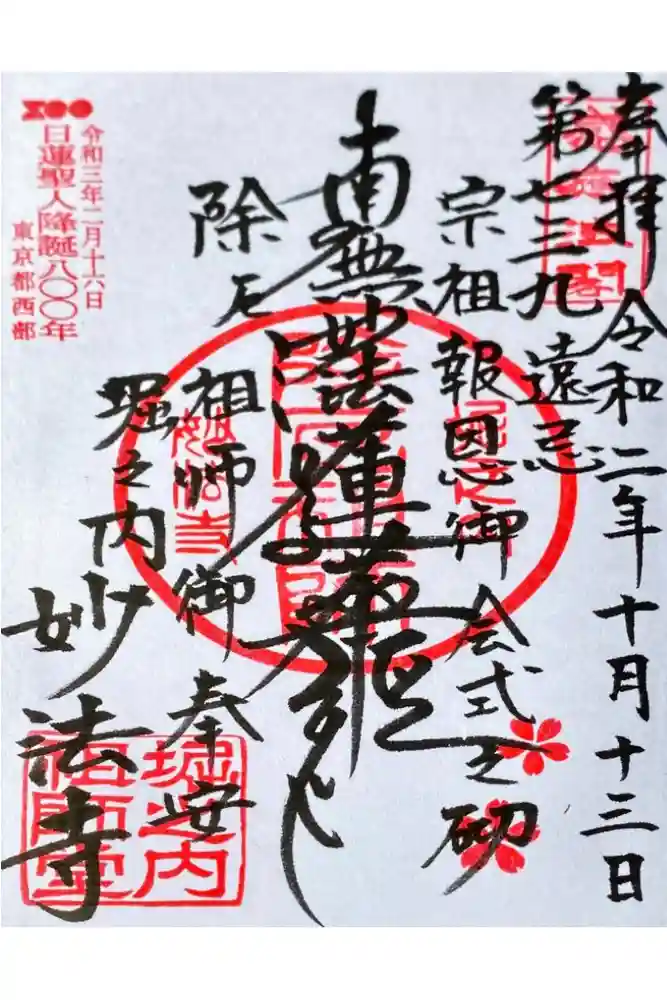 奉拝 令和二年十月十三日
第七三九遠忌
宗祖報恩御会式之砌
南無妙法蓮華経
除厄
祖師御奉安
堀之内
妙法寺
令和三年二月十六日
日蓮聖人降誕八〇〇年
東京都西部
堀之内
祖師堂